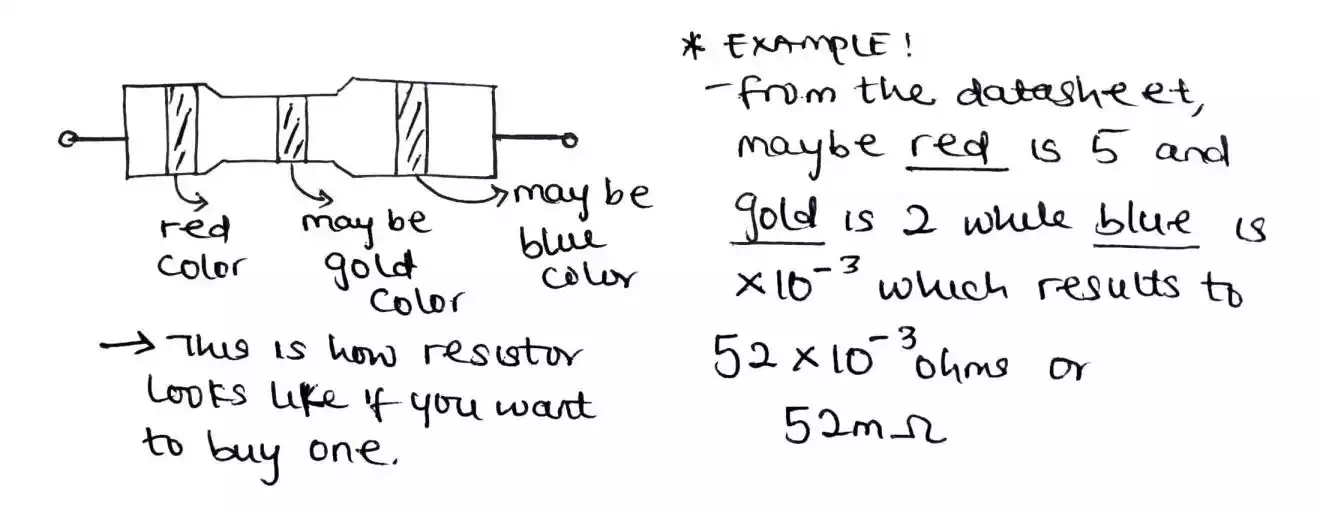 red
color
may be
gold
color
may be
blue
color
→ This is how resistor
looks like if you want
to buy one.
* EXAMPLE!
- from the datasheet,
maybe red is 5 and
gold is 2 while blue is
×10⁻³ which results to
52 × 10⁻³ ohms or
52mΩ